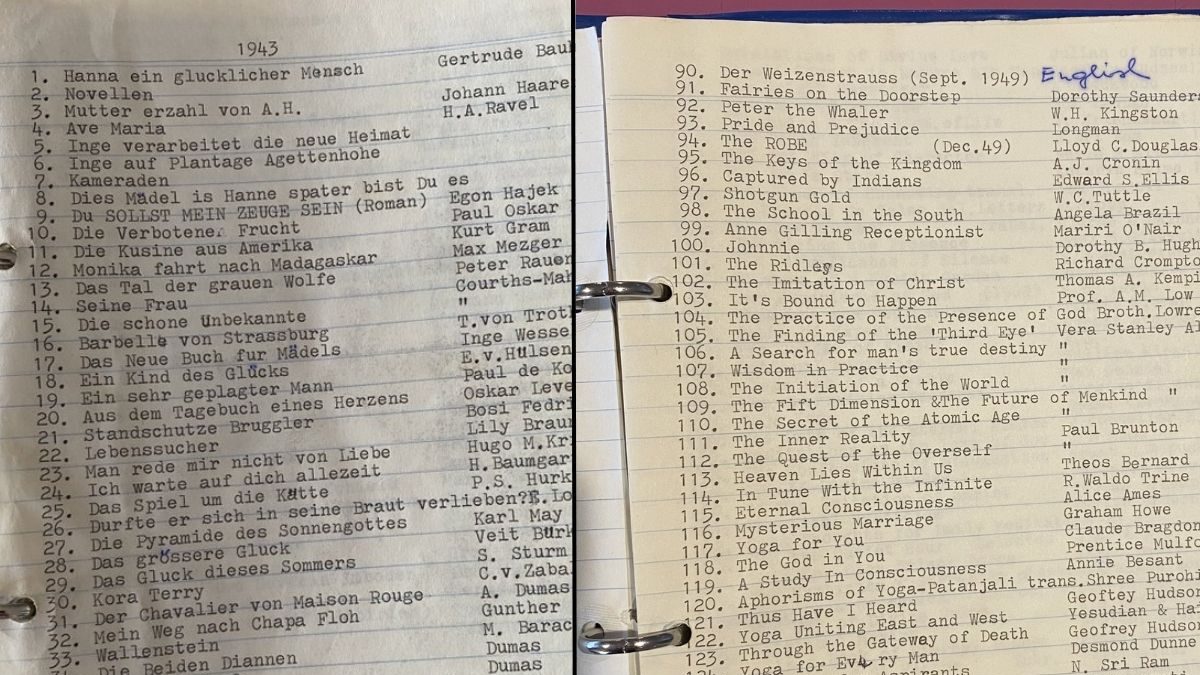 1943
1. Hanna ein glucklicher Mensch Gertrude Bau
2. Novellen
3. Mutter erzahl von A.H. Johann Haare
4. Ave Maria H.A.Ravel
5. Inge verarbeitet die neue Heimat
6. Inge auf Plantage Agettenhohe
7. Kameraden
8. Dies Mädel is Hanne spater bist Du es
9. Du SOLLST MEIN ZEUGE SEIN (Roman) Egon Hajek
10. Die Verbotener Frucht Paul Oskar
11. Die Kusine aus Amerika Kurt Gram
12. Monika fahrt nach Madagaskar Max Mezger
13. Das Tal der grauen Wolfe Peter Rauen
14. Seine Frau Courths-Mah
15. Die schone Unbekannte "
16. Barbelle von Strassburg T.von Trot
17. Das Neue Buch fur Mädels Inge Wesse
18. Ein Kind des Glücks E.v.Hülsen
19. Ein sehr geplagter Mann Paul de Ko
20. Aus dem Tagebuch eines Herzens Oskar Leve
21. Standschutze Bruggler Bosi Fedri
22. Lebenssucher Lily Brau
23. Man rede mir nicht von Liebe Hugo M.Kri
24. Ich warte auf dich allezeit H.Baumgar
25. Das Spiel um die Kätte P.S. Hurk
26. Durfte er sich in seine Braut verlieben?E.Lo
27. Die Pyramide des Sonnengottes Karl May
28. Das grössere Gluck Veit Bürk
29. Das Gluck dieses Sommers S. Sturm
30. Kora Terry C.v.Zaba
31. Der Chavalier von Maison Rouge A. Dumas
32. Mein Weg nach Chapa Floh Gunther
33. Wallenstein M. Barac
Die Beiden Diannen Dumas
Dumas
90. Der Weizenstrauss (Sept. 1949) English
91. Fairies on the Doorstep Dorothy Saunders
92. Peter the Whaler W.H. Kingston
93. Pride and Prejudice Longman
94. The ROBE (Dec.49) Lloyd C.Douglas
95. The Keys of the Kingdom A.J. Cronin
96. Captured by Indians Edward S.Ellis
97. Shotgun Gold W.C.Tuttle
98. The School in the South Angela Brazil
99. Anne Gilling Receptionist Mariri O'Nair
100. Johnnie Dorothy B. Hugh
101. The Ridleys Richard Crompto
102. The Imitation of Christ Thomas A. Kempi
103. It's Bound to Happen Prof. A.M. Low
104. The Practice of the Presence of God Broth.Lowre
105. The Finding of the 'Third Eye' Vera Stanley Al
106. A Search for man's true destiny "
107. Wisdom in Practice "
108. The Initiation of the World "
109. The Fift Dimension &The Future of Menkind "
110. The Secret of the Atomic Age "
111. The Inner Reality Paul Brunton
112. The Quest of the Overself "
113. Heaven Lies Within Us Theos Bernard
114. In Tune With the Infinite R.Waldo Trine
115. Eternal Consciousness Alice Ames
116. Mysterious Marriage Graham Howe
117. Yoga for You Claude Bragdon
118. The God in You Prentice Mulfo
119. A Study In Consciousness Annie Besant
120. Aphorisms of Yoga-Patanjali trans.Shree Purohi
121. Thus Have I Heard Geoftey Hudson
122. Yoga Uniting East and West Yesudian & Ha
123. Through the Gateway of Death Geofrey Hudson
Yoga for Every Man Desmond Dunne
N. Sri Ram